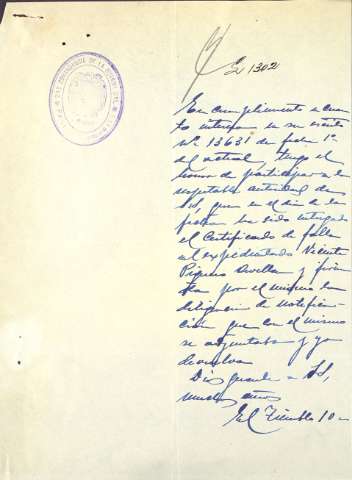 1302
En cumplimiento a cuan-
to interesa en su escrito
nº 13631 de fecha 1º
del actual, tengo el
honor de participar a la
respetable autoridad de
Vd, que en el dia de la
fecha ha sido entregado
el Certificado de fallo
al expedientado Vicente
y firma-
da por el mismo la
diligencia de notifica-
ción que con el mismo
se adjuntaba y yo
devuelvo
Dios guarde a Vd,
muchos años
El Tiemblo 10-